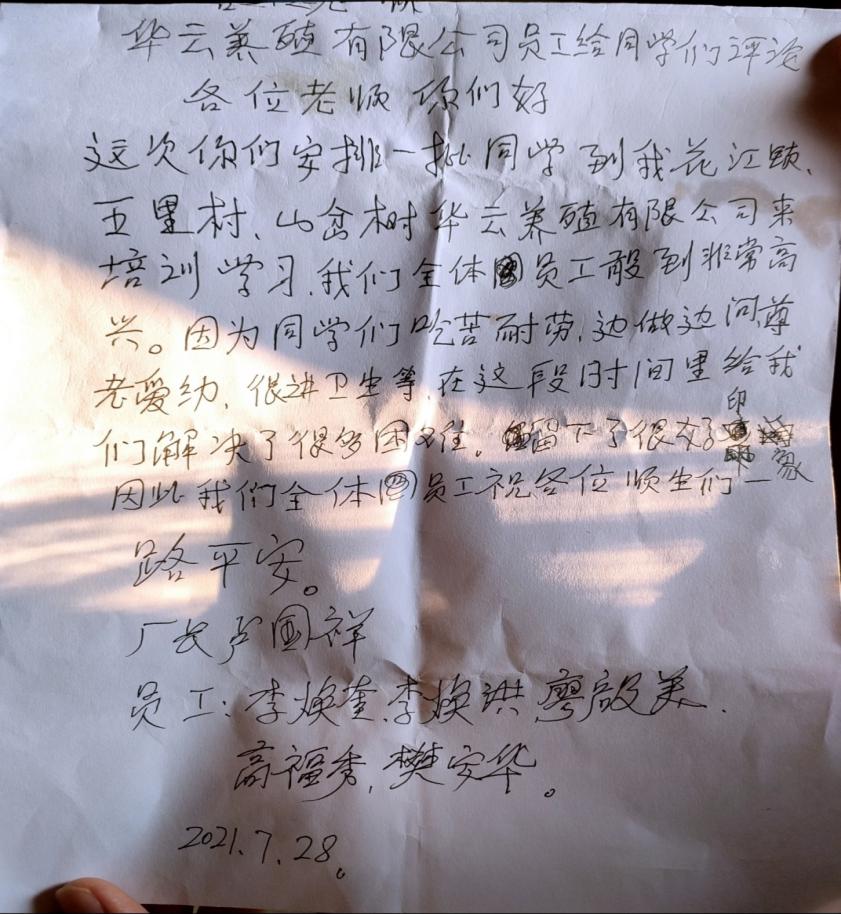 华云养殖有限公司员工给同学们评论
各位老师你们好
这次你们安排一批同学到我花江镇、
五里村、山岔树华云养殖有限公司来
培训学习,我们全体员工都感到非常高
兴。因为同学们吃苦耐劳,边做边问,尊
老爱幼,很讲卫生等,在这段时间里给我
们解决了很多困难。留下了很好印象
因此我们全体员工祝各位师生们一
路平安。
厂长卢国祥
员工:李焕奎,李焕洪,廖美.
高福秀,樊安华。
2021.7.28。